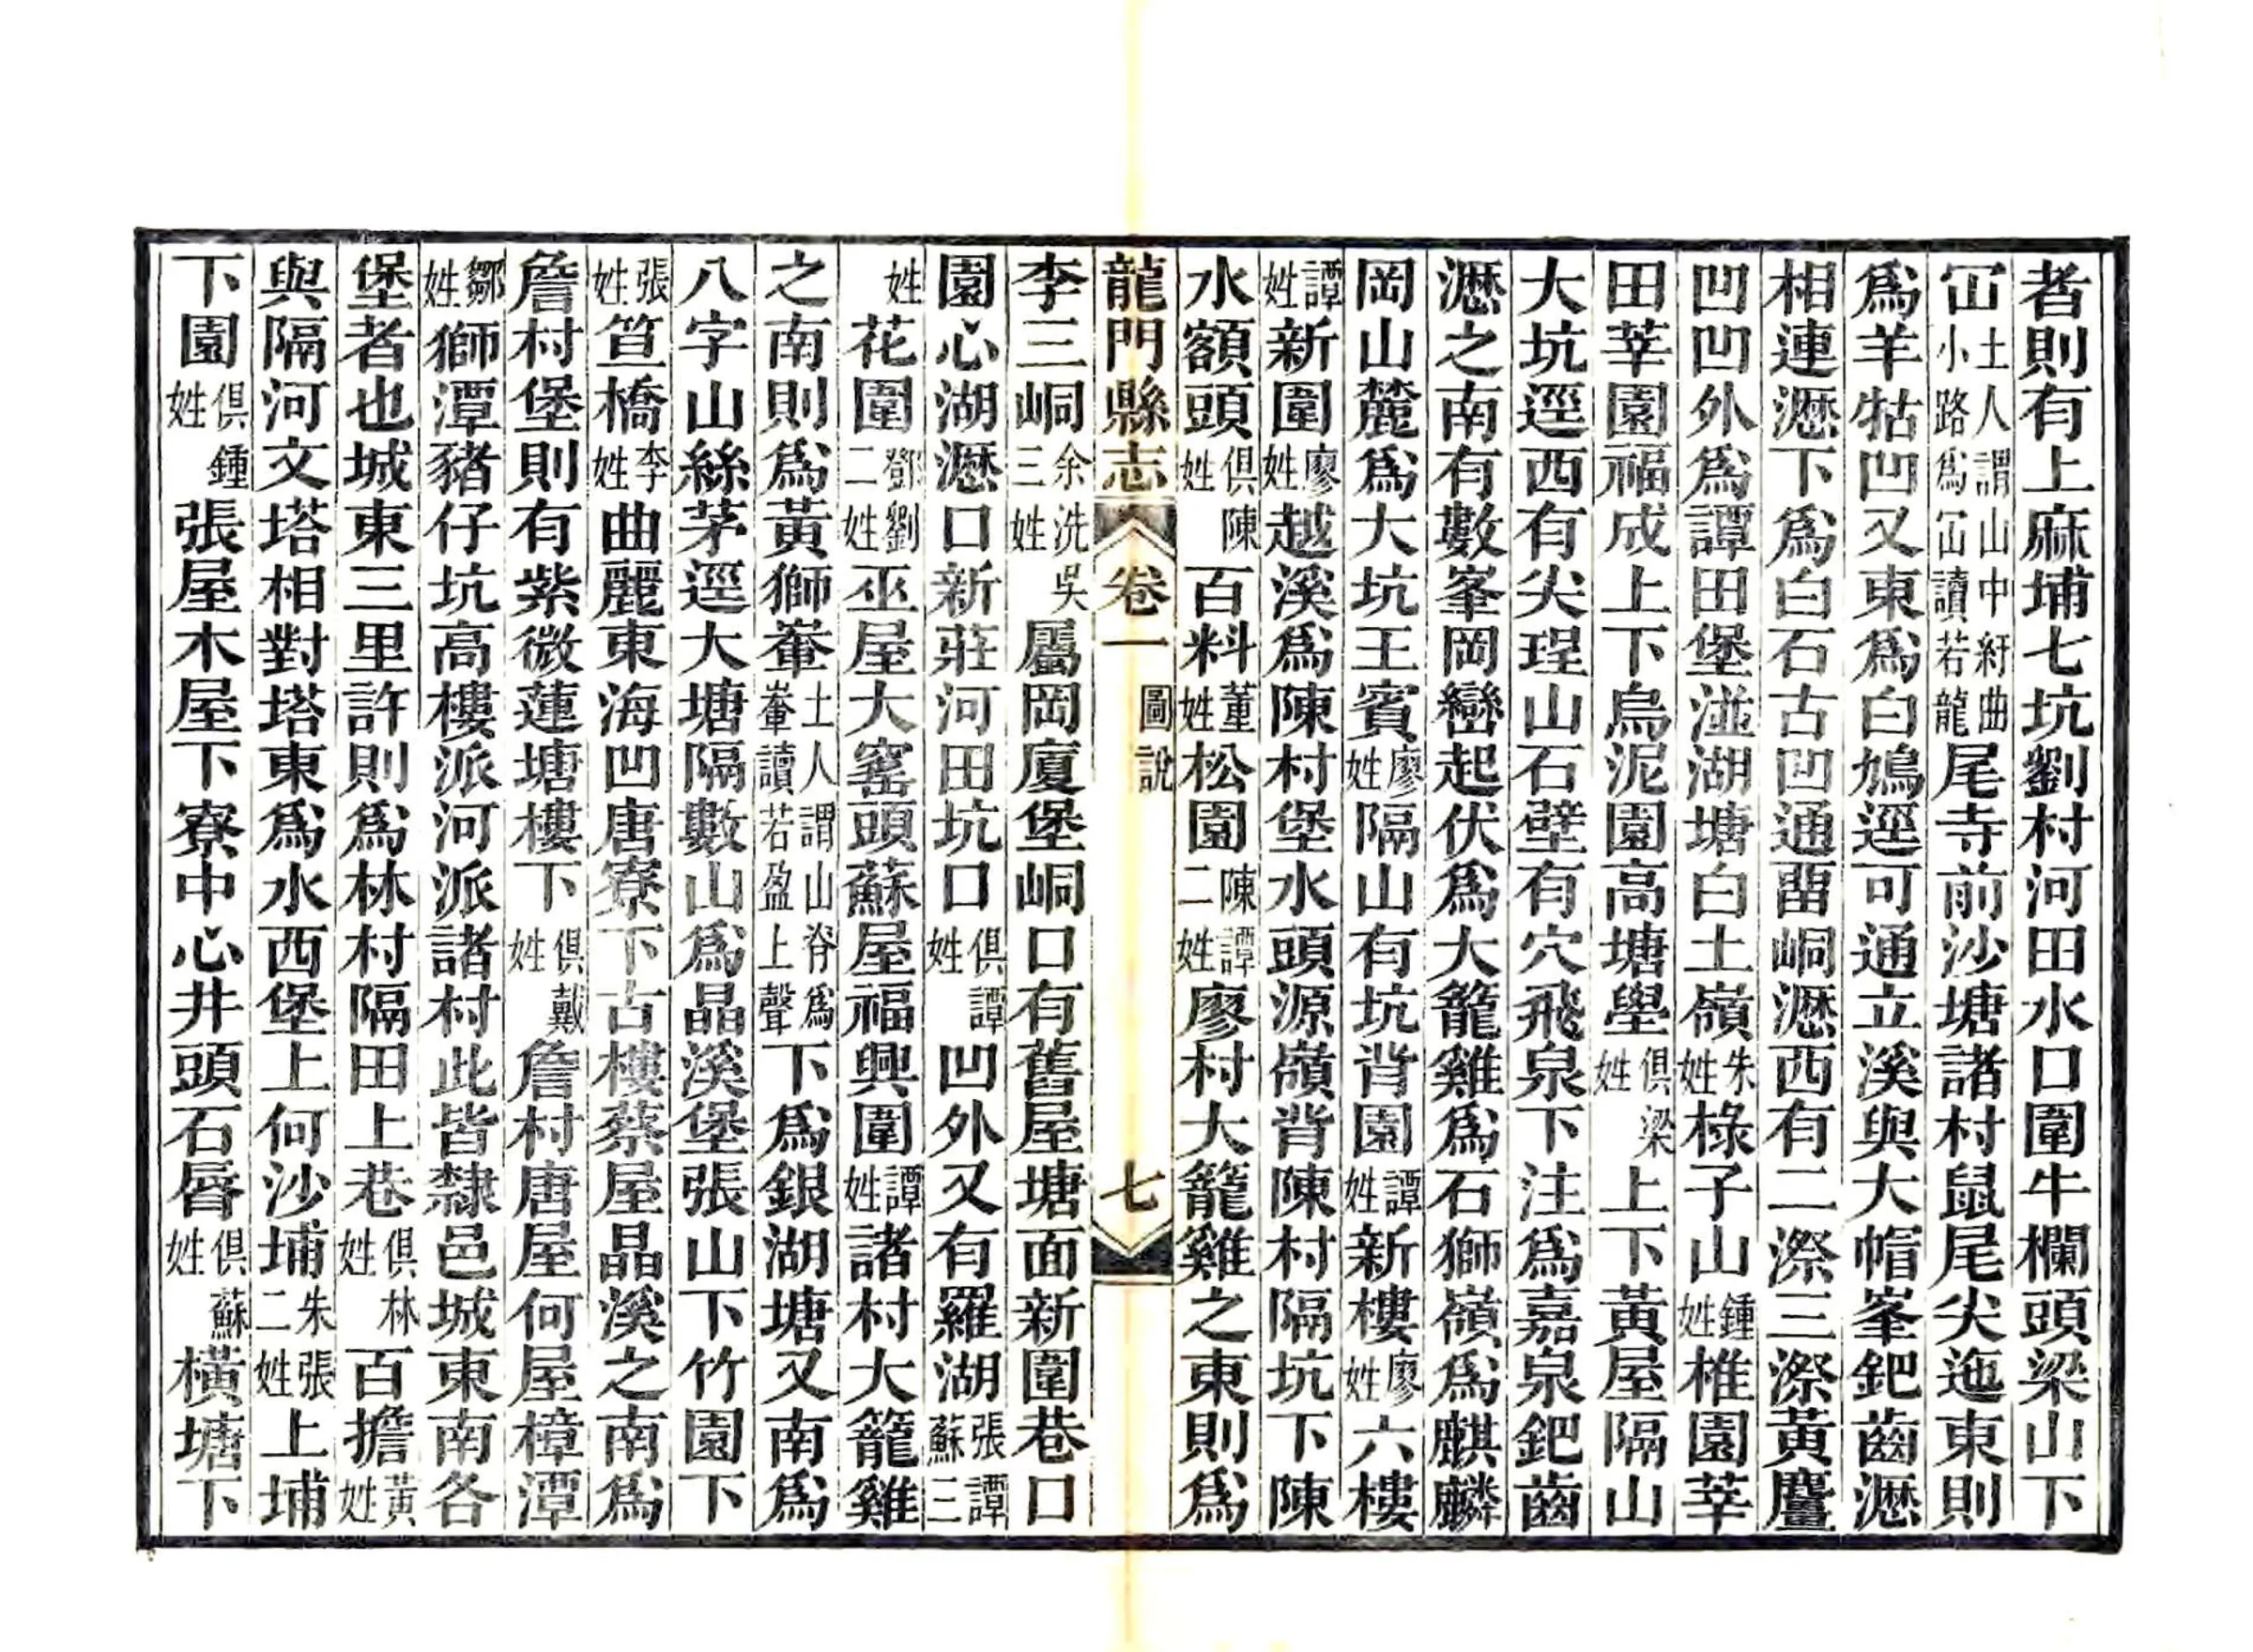 者則有上麻埔七坑劉村河田水口圍牛欄頭梁山下
冚土人謂山中紆曲小路爲冚讀若龍尾寺前沙塘諸村鼠尾尖迤東則
爲羊牯凹又東爲白鳩逕可通立溪與大帽峯鈀齒瀝
相連瀝下爲白石古凹通畱峒瀝西有二漈三漈黃麖
凹凹外爲譚田堡湴湖塘白土嶺朱姓椂子山鍾姓椎園莘
田莘園福成上下烏泥園高塘壆俱梁姓上下黃屋隔山
大坑逕西有尖珵山石壁有穴飛泉下注爲嘉泉鈀齒
瀝之南有數峯岡巒起伏爲大籠雞爲石獅嶺爲麒麟
岡山麓爲大坑王賓廖姓隔山有坑背園譚姓新樓廖姓六樓
譚姓新圍廖姓越溪爲陳村堡水頭源嶺背陳村隔坑下陳
水額頭俱陳姓百料董姓松園陳譚二姓廖村大籠雞之東則爲
龍門縣志 卷一 圖說 七
李三峒余冼吳三姓屬岡廈堡峒口有舊屋塘面新圍巷口
園心湖瀝口新莊河田坑口俱譚姓凹外又有羅湖張譚蘇三
姓花圍鄧劉二姓巫屋大窰頭蘇屋福興圍譚姓諸村大籠雞
之南則爲黃獅輋土人謂山脊爲輋讀若盈上聲下爲銀湖塘又南爲
八字山絲茅逕大塘隔數山爲晶溪堡張山下竹園下
張姓笪橋李姓曲麗東海凹唐寮下古樓蔡屋晶溪之南爲
詹村堡則有紫微蓮塘樓下俱戴姓詹村唐屋何屋樟潭
鄒姓獅潭豬仔坑高樓派河派諸村此皆隸邑城東南各
堡者也城東三里許則爲林村隔田上巷俱林姓百擔黃姓
與隔河文塔相對塔東爲水西堡上何沙埔朱張二姓上埔
下園俱鍾姓張屋木屋下寮中心井頭石唇俱蘇姓橫塘下